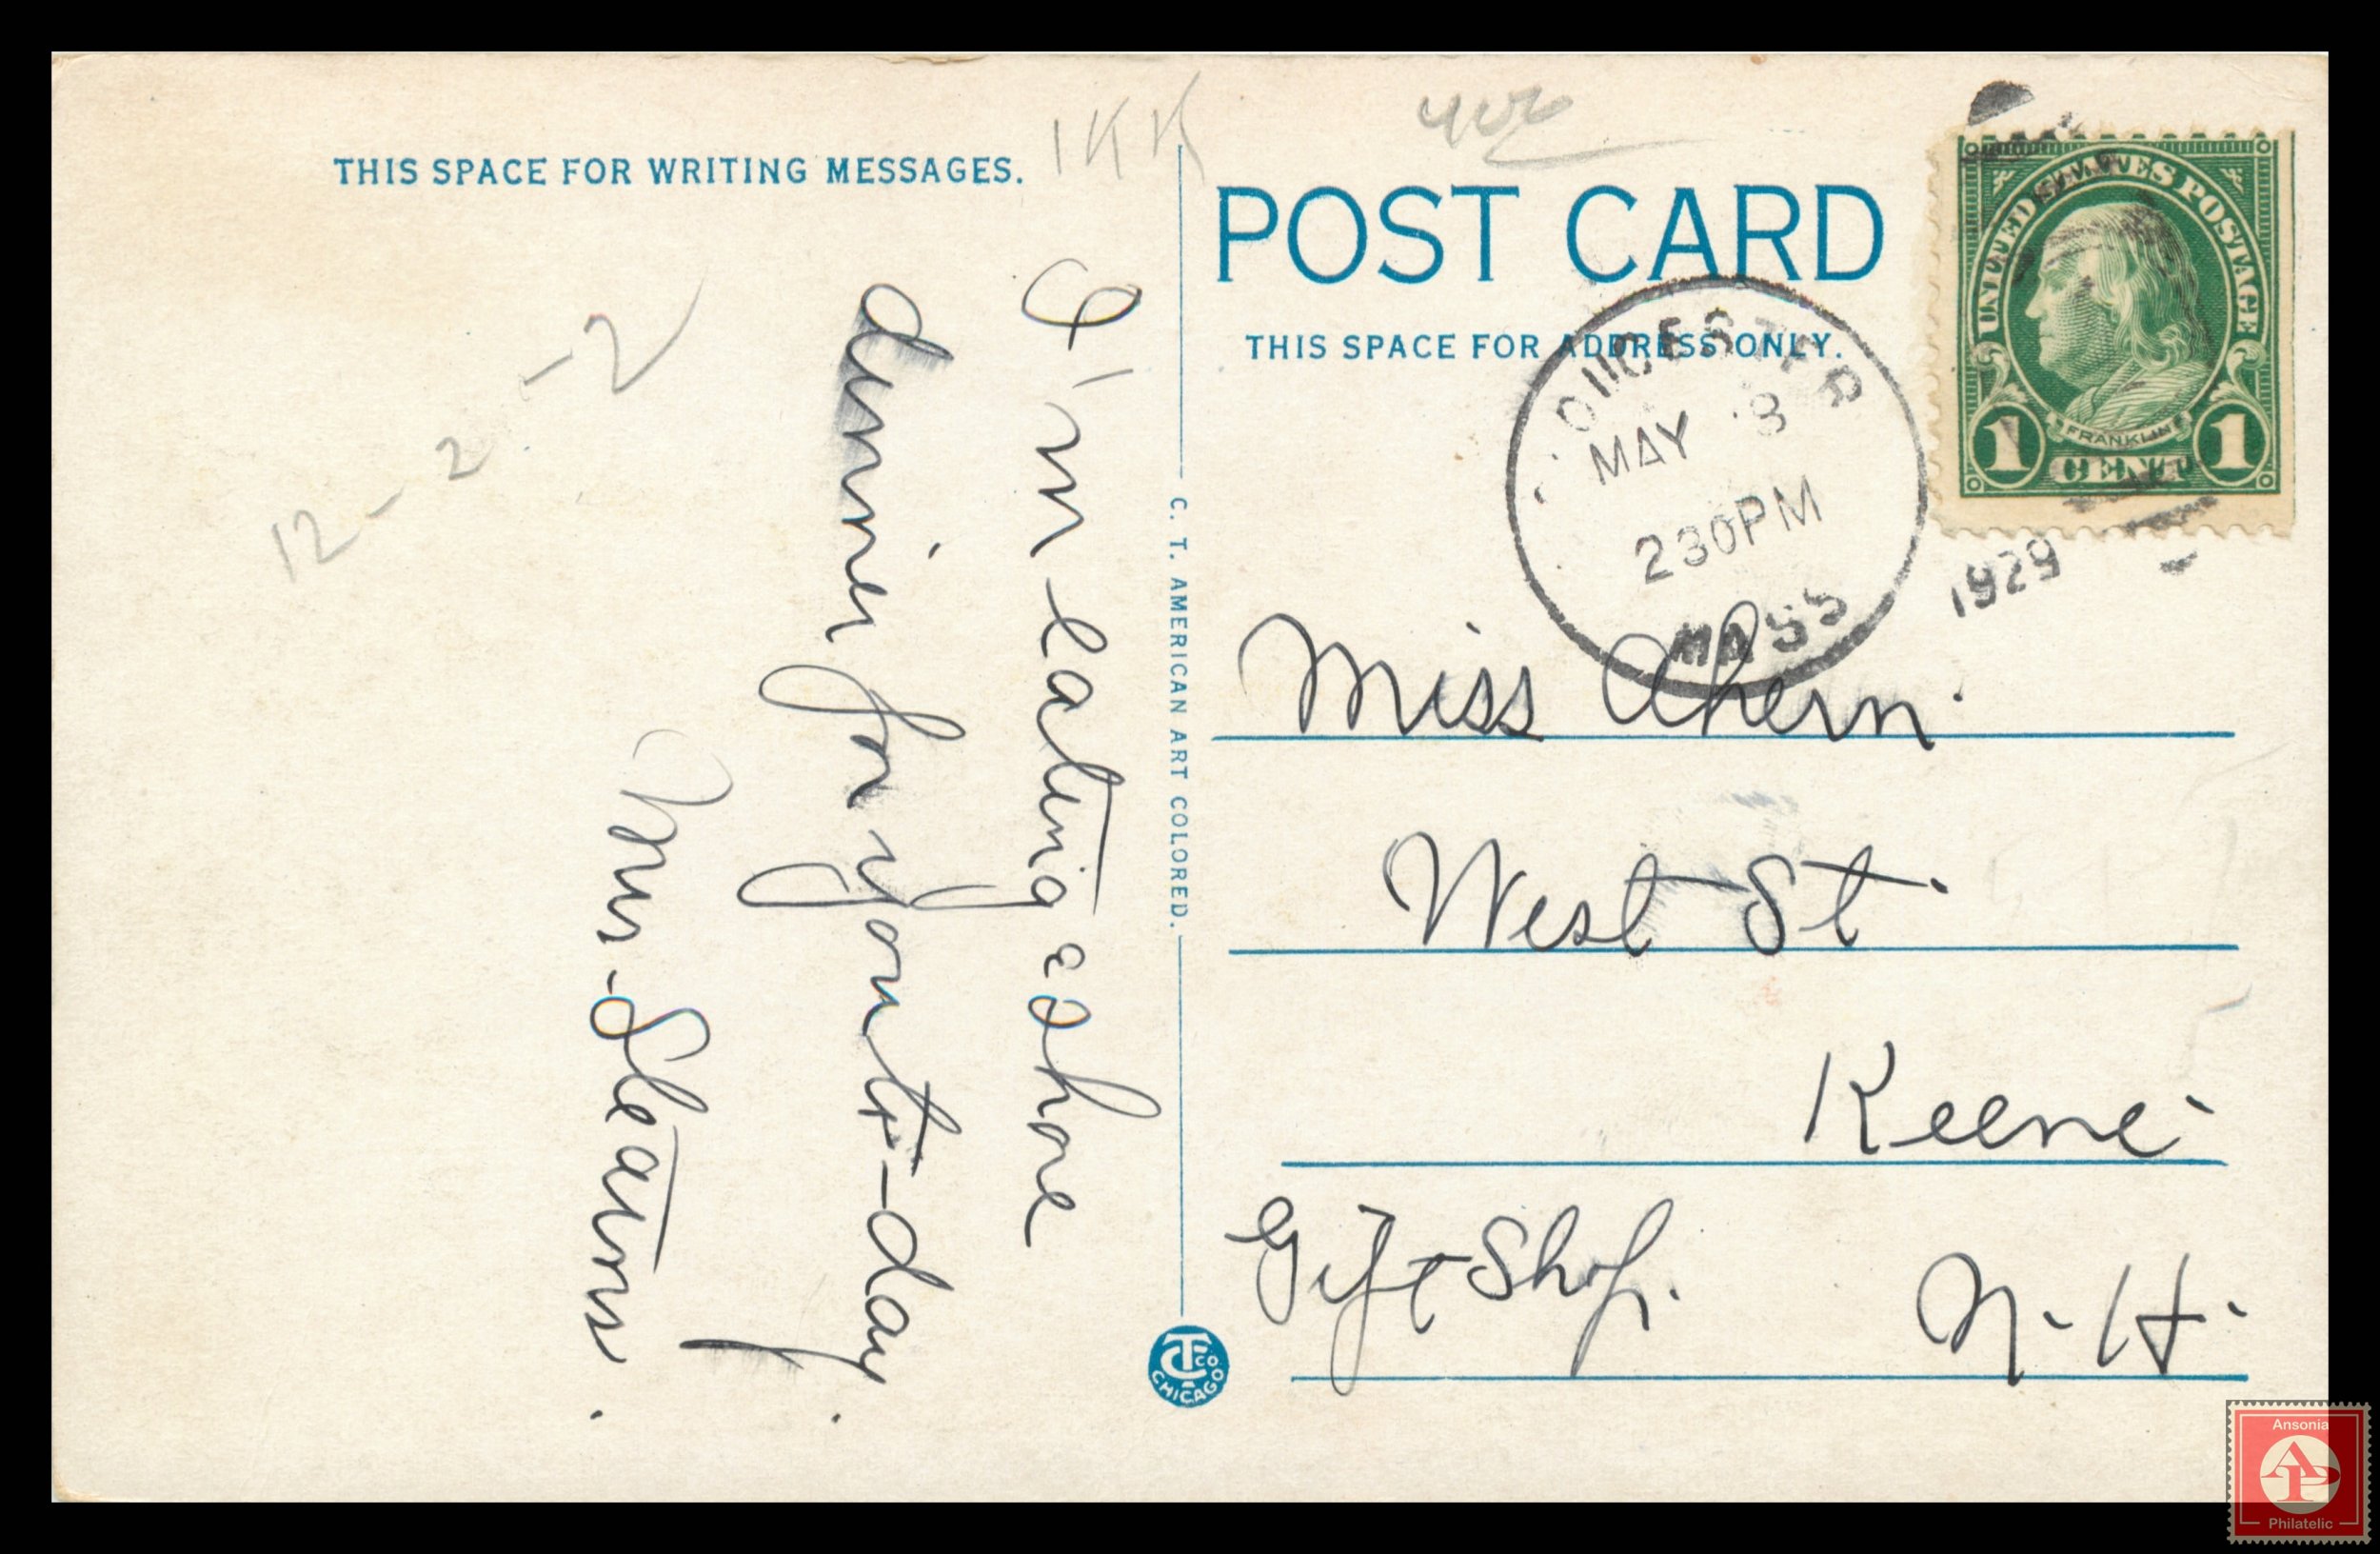 THIS SPACE FOR WRITING MESSAGES.
I'm eating a shore
dinner for you to-day.
Mrs. Stearns.
12-2-2
C. T. AMERICAN ART COLORED.
CT CO. CHICAGO
POST CARD
THIS SPACE FOR ADDRESS ONLY.
UNITED STATES POSTAGE
FRANKLIN
1 CENT 1
MAY 8
230PM
MASS
1929
Miss Ahern.
West St.
Keene.
Gift Shop.
N. H.
Ansonia
AP
Philatelic